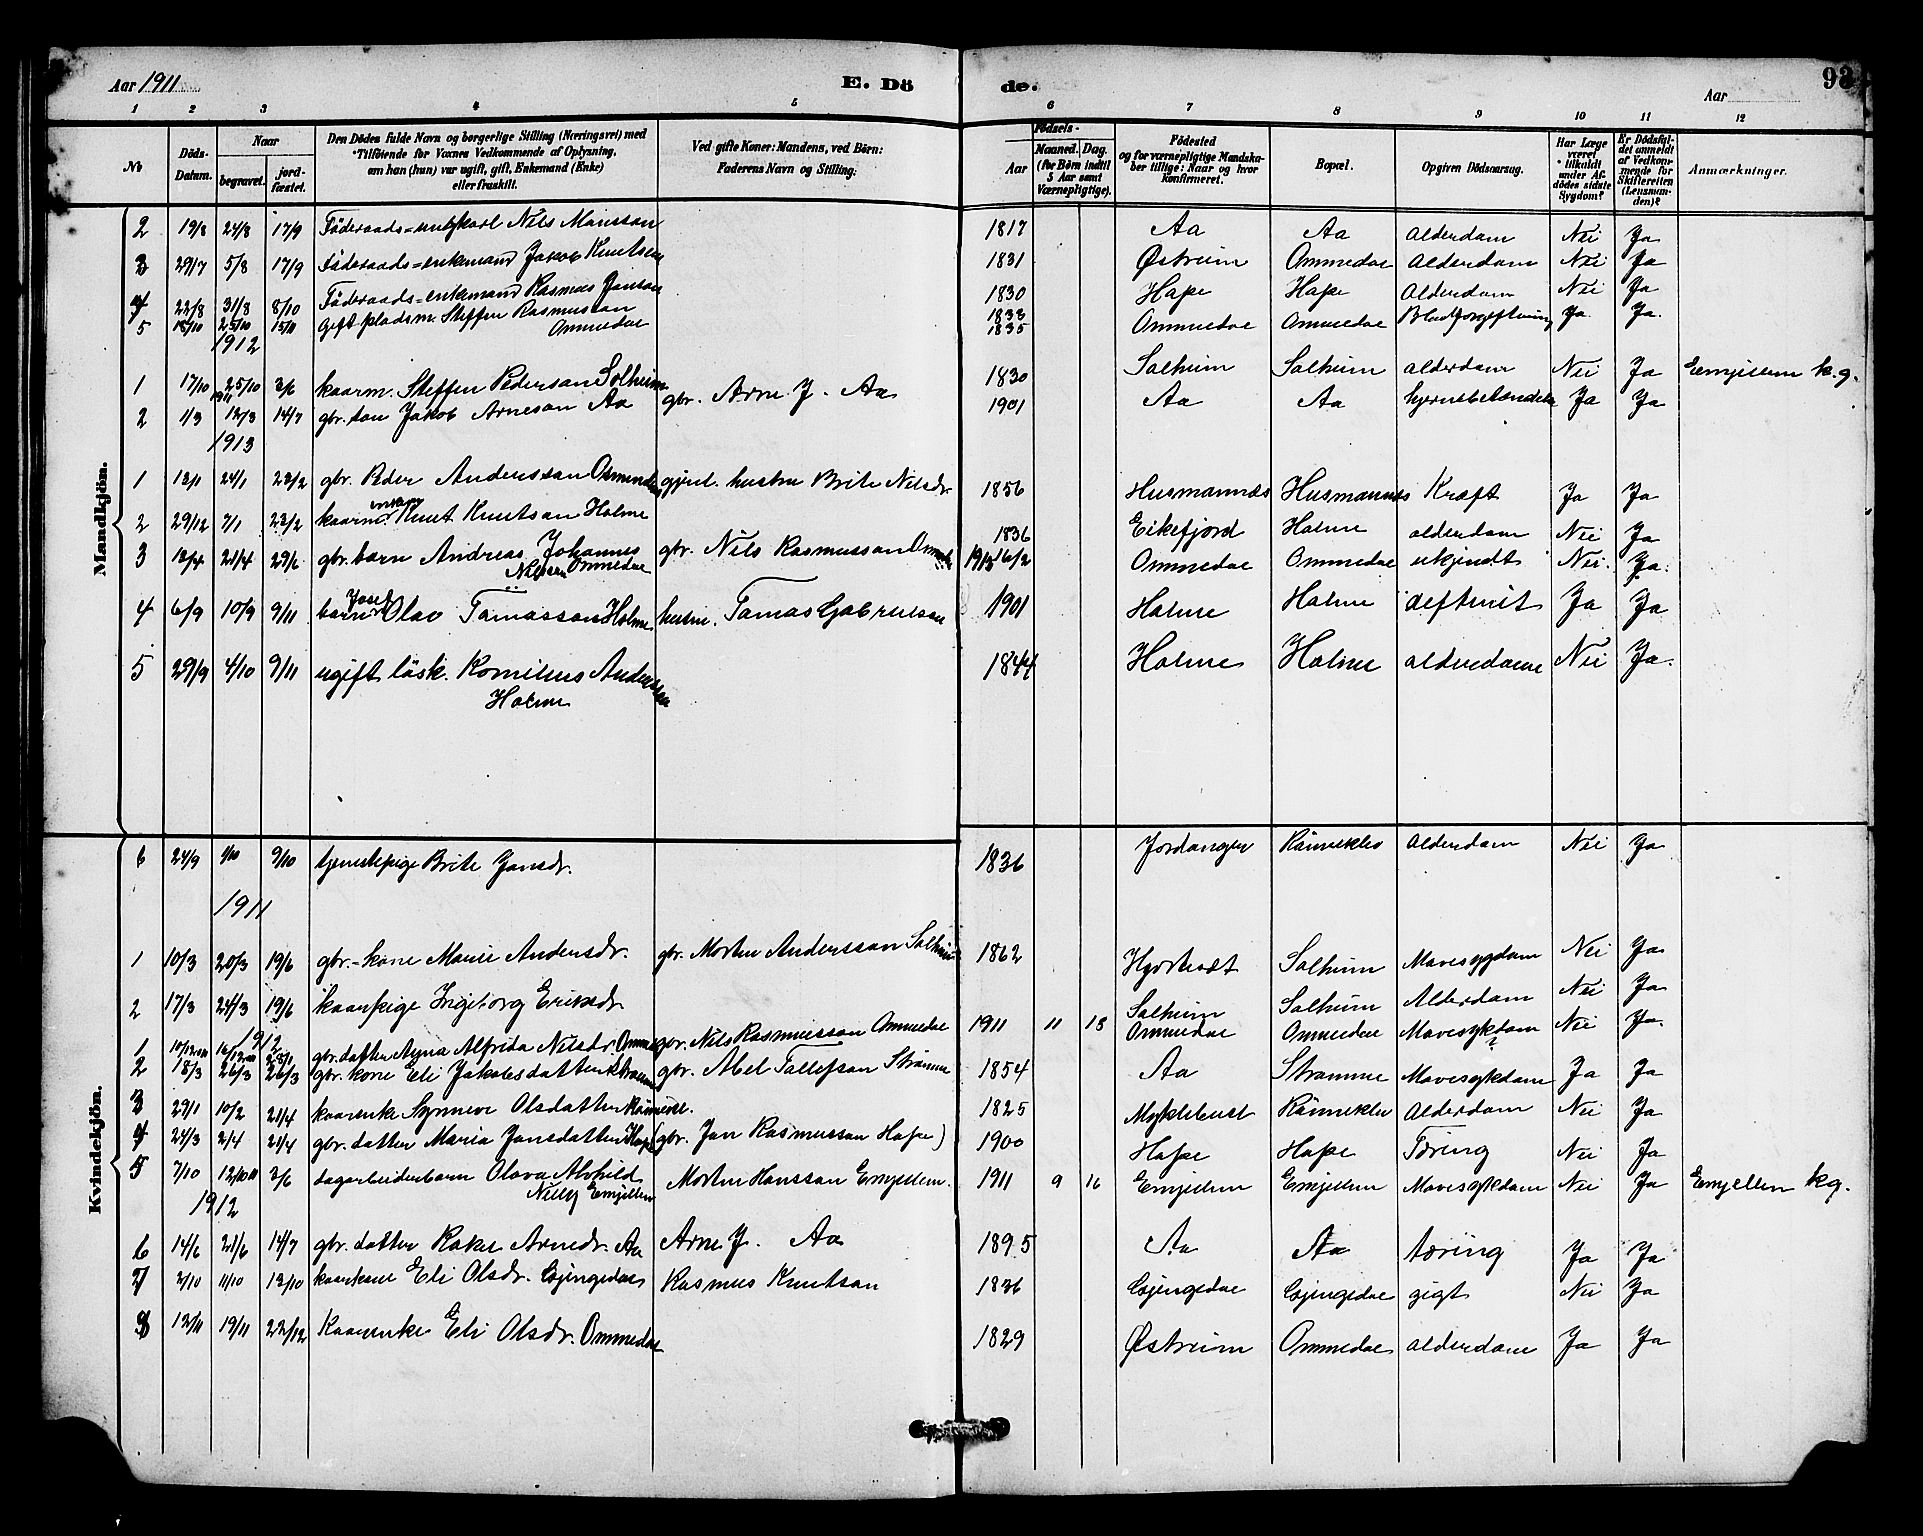 Aar 1911
E. Dö
de.
Aar
93
1 2 3 4 5 6 7 8 9 10 11 12
No
Döds-Datum.
Naar
begravet.
jord-fæstet.
Den Dödes fulde Navn og borgerlige Stilling (Næringsvei) med
*Tilföiende for Voxnes Vedkommende af Oplysning,
om han (hun) var ugift, gift, Enkemand (Enke)
eller fraskilt.
Ved gifte Koner: Mandens, ved Börn:
Faderens Navn og Stilling.
Födsels-
Aar
Maaned. Dag.
(for Börn indtil
5 Aar samt
Værnepligtige).
Födested
og for værnepligtige Mandska-
ber tillige: Naar og hvor
Konfirmeret.
Bopæl.
Opgiven Dödsaarsag.
Har Læge
været
tilkaldt
under Af-
dödes sidste
Sygdom?
Er Dödsfal-
det anmeldt
af Vedkom-
mende for
Skifteretten
(Lensman-
den)?
Anmærkninger.
Mandkjön.
2 19/8 24/8 17/9 Föderaads-ungkarl Nils Monsson 1817 Aa Aa Alderdom Nei Ja
3 29/7 5/8 17/9 Föderaads-enkemand Jakob Knutsen 1831 Østreim Ommedae Alderdom Nei Ja
4 22/8 31/8 8/10 Föderaads-enkemand Rasmus Jonson 1830 Hope Hope Alderdom Nei Ja
5 18/10 25/10 15/11 gift pladsm. Steffen Rasmusson Ommedae 1838 1835 Ommedae Ommedae Blodforgiftning Ja Ja.
1912
1 17/10 25/10 1911 3/6 kaarm. Steffen Pederson Solheim 1830 Solheim Solheim alderdom Nei Ja Emjellem k.g.
2 1/3 12/3 14/7 gbr. son Jakob Arneson Aa gbr. Arne J. Aa 1901 Aa Aa hjernebetændelse Ja Ja
1913
1 13/1 24/1 23/2 gbr. Peder Andersson gjenl. hustru Brite Nilsdr. 1856 Husmannæs Husmannæs Kræft Ja Ja
2 29/12 7/1 23/2 kaarm. enkem. Knut Knutson Holme 1836 Eikefjord Holme alderdom Nei Ja
3 13/4 21/4 29/6 gbr. barn Andreas Johannes Nilssen Ommedae gbr. Nils Rasmusson 1913 16/2 Ommedae Ommedae ukjendt Nei. Ja.
4 6/9 10/9 9/11 barn Josef Olav Tomasson Holme hustru. Tomas Gabrielson 1901 Holme Holme difterit Ja Ja
5 29/9 4/10 9/11 ugift läsk. Kornelius Anderson Holme 1844 Holme Holme alderdom Nei Ja.
Kvindekjön.
6 24/9 1/10 9/10 tjenestepige Brite Jonsdr. 1836 Jordanger Rønneklev Alderdom Nei Ja
1911
1 10/3 20/3 19/6 gbr.-kone Marie Andersdr. gbr. Morten Andersson Solheim 1862 Hjortedt Solheim Mavesygdom Nei Ja
2 17/3 24/3 19/6 kaarpige Ingeborg Eriksdr. Solheim Solheim Alderdom Nei Ja
1912
1 gbr. datter Agna Alfrida Nilsdr. gbr. Nils Rasmusson Ommedae 1911 11 18 Ommedae Ommedae Mavesykdom? Nei Ja.
2 18/3 26/3 26/3 gbr. kone Eli Jakobsdatter Strømme gbr. Abel Tollefson Strømme 1854 Aa Strømme Mavesykdom Ja Ja
3 29/1 10/2 21/4 kaarenke Synneve Olsdatter 1825 Myklebust Rønneklev Alderdom Nei Ja
4 24/3 2/4 21/4 gbr. datter Maria Jonsdatter Hope (gbr. Jon Rasmusson Hope) 1900 Hope Hope Tæring Nei Ja
5 7/10 12/10 11 3/6 dagarbeiderbarn Olava Alvhild Nelly Emjellem Morten Hansson Emjellem. 1911 9 16 Emjellem Emjellem Mavesykdom Nei Ja Emjellem kg.
1912
6 14/6 21/6 14/7 gbr. datter Rakel Arnedr. Aa Arne J. Aa 1895 Aa Aa tæring Ja Ja
7 2/10 11/10 13/10 kaarkone Eli Olsdr. Gjengedae Rasmus Knutson 1836 Gjengedae Gjengedae gigt Nei Ja
8 12/11 19/11 22/12 Kaarenke Eli Olsdr. Ommedae 1829 Østreim Ommedae alderdom Ja Ja